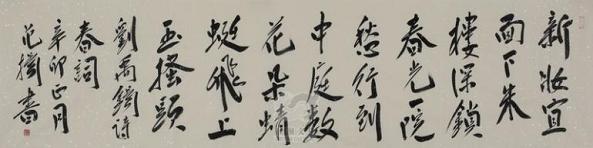 新妝宜
面下朱
樓深鎖
春光一院
愁行到
中庭數
花朵蜻
蜓飛上
玉搔頭
劉禹錫詩
春詞
辛卯正月
范書